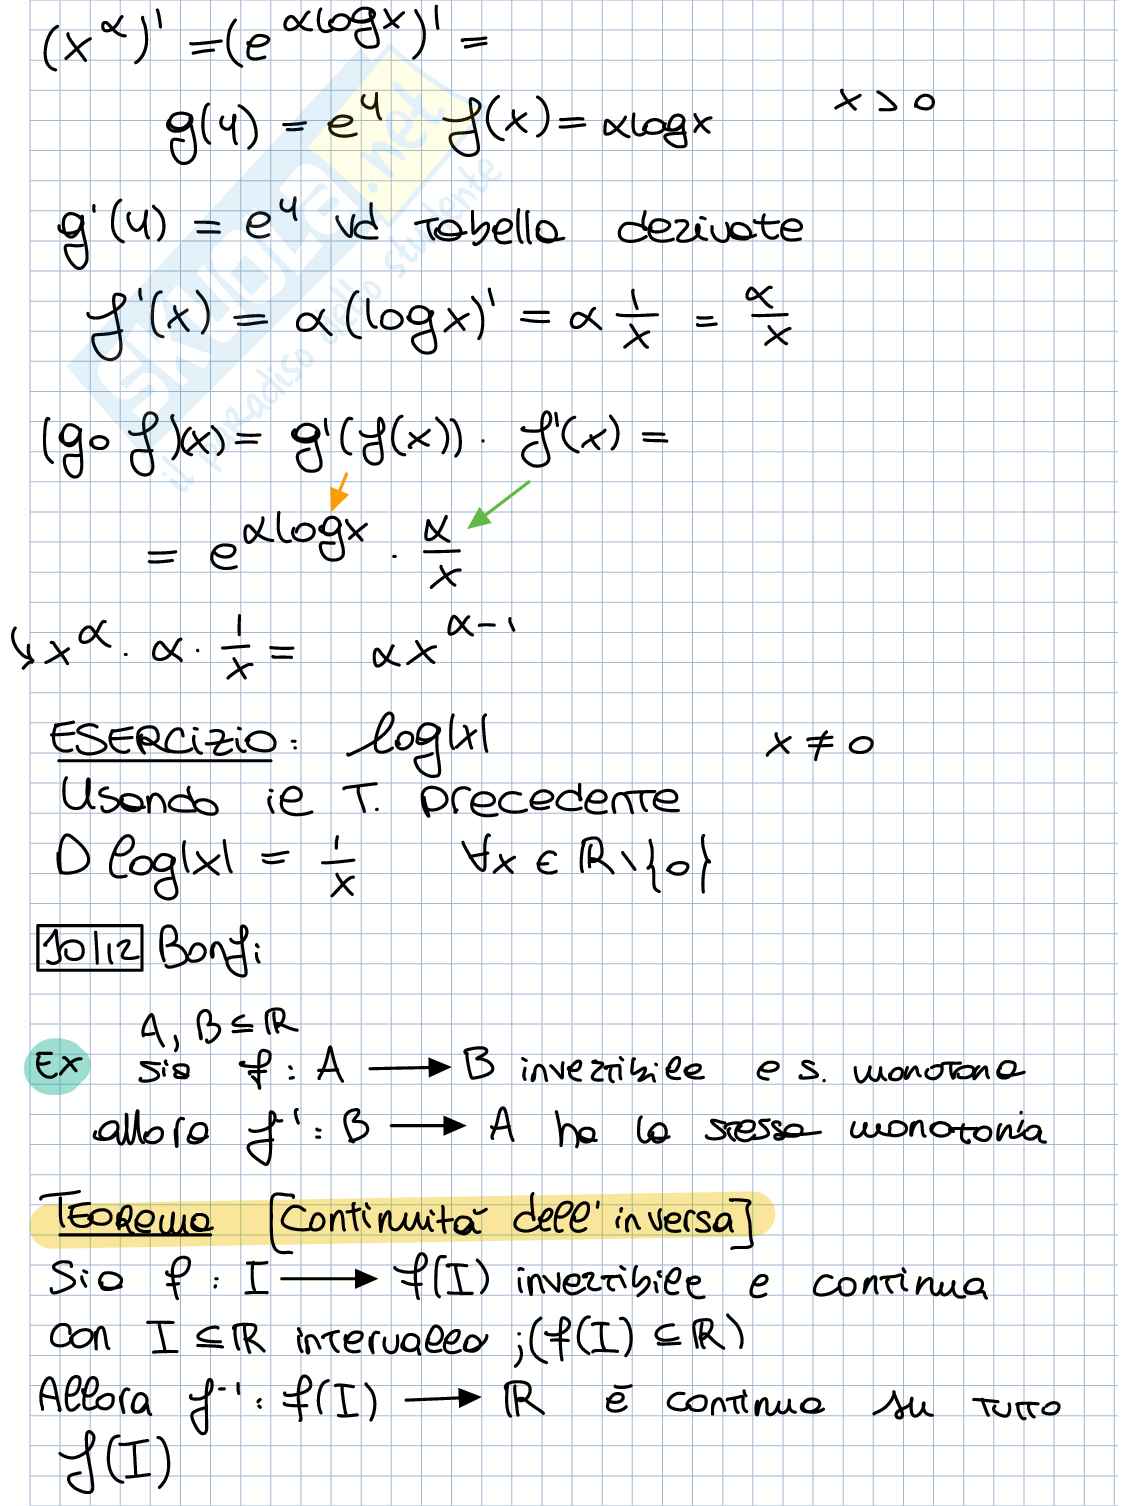 (x^α)' = (e^{αlogx})' =
g(y) = e^y f(x) = αlogx x > 0
g'(y) = e^y vd Tabella derivate
f'(x) = α(logx)' = α 1/x = α/x
(g∘f)(x) = g'(f(x)) · f'(x) =
= e^{αlogx} · α/x
↳ x^α · α · 1/x = αx^{α-1}
ESERCIZIO: log|x| x ≠ 0
Usando il T. precedente
D log|x| = 1/x ∀x ∈ ℝ\{0}
10/12 Bonfi
A, B ⊆ ℝ
Ex Sia f : A ⟶ B invertibile e s. monotona
allora f⁻¹ : B ⟶ A ha la stessa monotonia
TEOREMA [Continuità dell'inversa]
Sia f : I ⟶ f(I) invertibile e continua
con I ⊆ ℝ intervallo ; (f(I) ⊆ ℝ)
Allora f⁻¹ : f(I) ⟶ ℝ è continua su tutto
f(I)
SKUOLA.net
il paradiso dello studente